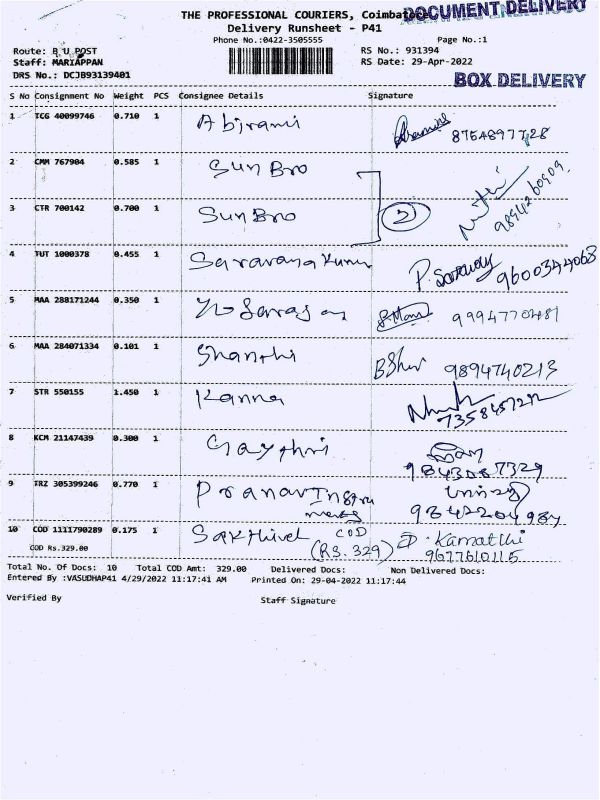 THE PROFESSIONAL COURIERS, Coimbatore
DOCUMENT DELIVERY
Delivery Runsheet - P41
Phone No.:0422-3505555
Page No.:1
Route: B U POST
RS No.: 931394
Staff: MARIAPPAN
RS Date: 29-Apr-2022
DRS No.: DCJB93139401
BOX DELIVERY
S No Consignment No Weight PCS Consignee Details Signature
1 TCG 40099746 0.710 1 Abirami 8754897728
2 CMM 767904 0.585 1 Sun Bro
3 CTR 700142 0.700 1 Sun Bro 2 9894260909
4 TUT 1000378 0.455 1 Saravana Kumar P. 9600344068
5 MAA 288171244 0.350 1 9994770481
6 MAA 284071334 0.101 1 Shanthi 9894740213
7 STR 550155 1.450 1 Kanna
8 KCM 21147439 0.300 1 Gayathri 9843087329
9 TRZ 305399246 0.770 1 Pranav 9842204987
10 COD 1111790289 0.175 1 Sakthivel COD D. Kamatchi
COD Rs.329.00 (RS. 329) 9677610115
Total No. Of Docs: 10 Total COD Amt: 329.00 Delivered Docs: Non Delivered Docs:
Entered By :VASUDHAP41 4/29/2022 11:17:41 AM Printed On: 29-04-2022 11:17:44
Verified By Staff Signature